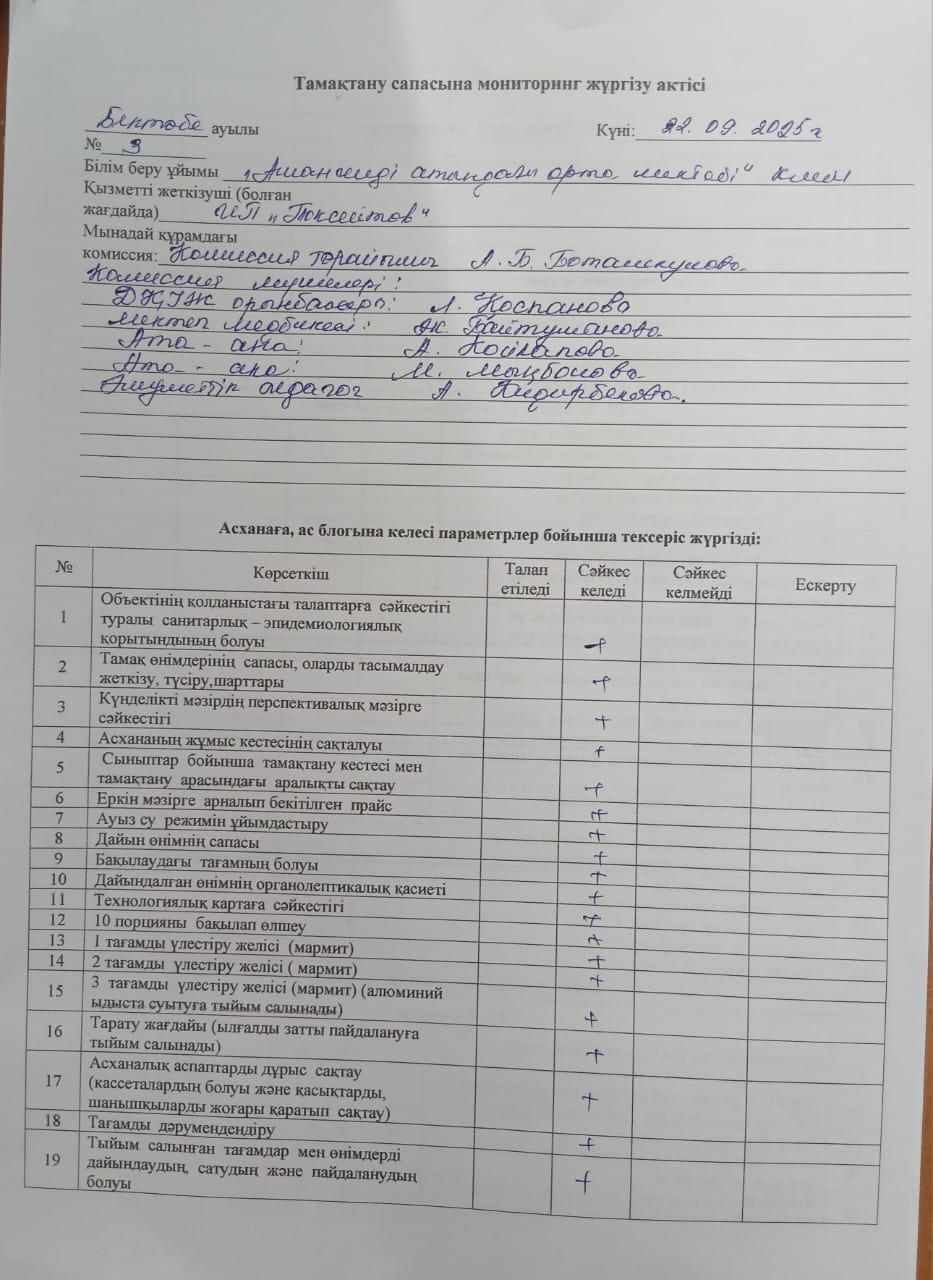 Тамақтану сапасына мониторинг жүргізу актісі
Бектөбе ауылы Күні: 22. 09. 2025 г
№ 3
Білім беру ұйымы "Амангелді атындағы орта мектебі" КММ
Қызметті жеткізуші (болған
жағдайда) ИП "Токсеитов"
Мынадай құрамдағы
комиссия: Комиссия төрайымы А. Б. Боташкулова
Комиссия мүшелері:
ДҚІЖ орынбасары: Л. Коспанова
Мектеп медбикесі: Ж. Байтушанова
Ата - ана: А.
Ата - ана: М. Мыңбонова
Әлеуметтік педагог А. Кидирбекова.
Асханаға, ас блогына келесі параметрлер бойынша тексеріс жүргізді:
№ Көрсеткіш Талап етіледі Сәйкес келеді Сәйкес келмейді Ескерту
1 Объектінің қолданыстағы талаптарға сәйкестігі
туралы санитарлық – эпидемиологиялық
қорытындының болуы +
2 Тамақ өнімдерінің сапасы, оларды тасымалдау
жеткізу, түсіру,шарттары +
3 Күнделікті мәзірдің перспективалық мәзірге
сәйкестігі +
4 Асхананың жұмыс кестесінің сақталуы +
5 Сыныптар бойынша тамақтану кестесі мен
тамақтану арасындағы аралықты сақтау +
6 Еркін мәзірге арналып бекітілген прайс +
7 Ауыз су режимін ұйымдастыру +
8 Дайын өнімнің сапасы +
9 Бақылаудағы тағамның болуы +
10 Дайындалған өнімнің органолептикалық қасиеті +
11 Технологиялық картаға сәйкестігі +
12 10 порцияны бақылап өлшеу +
13 1 тағамды үлестіру желісі (мармит) +
14 2 тағамды үлестіру желісі ( мармит) +
15 3 тағамды үлестіру желісі (мармит) (алюминий
ыдыста суытуға тыйым салынады) +
16 Тарату жағдайы (ылғалды затты пайдалануға
тыйым салынады) +
17 Асханалық аспаптарды дұрыс сақтау
(кассеталардың болуы және қасықтарды,
шанышқыларды жоғары қаратып сақтау) +
18 Тағамды дәрумендендіру +
19 Тыйым салынған тағамдар мен өнімдерді
дайындаудың, сатудың және пайдаланудың
болуы +